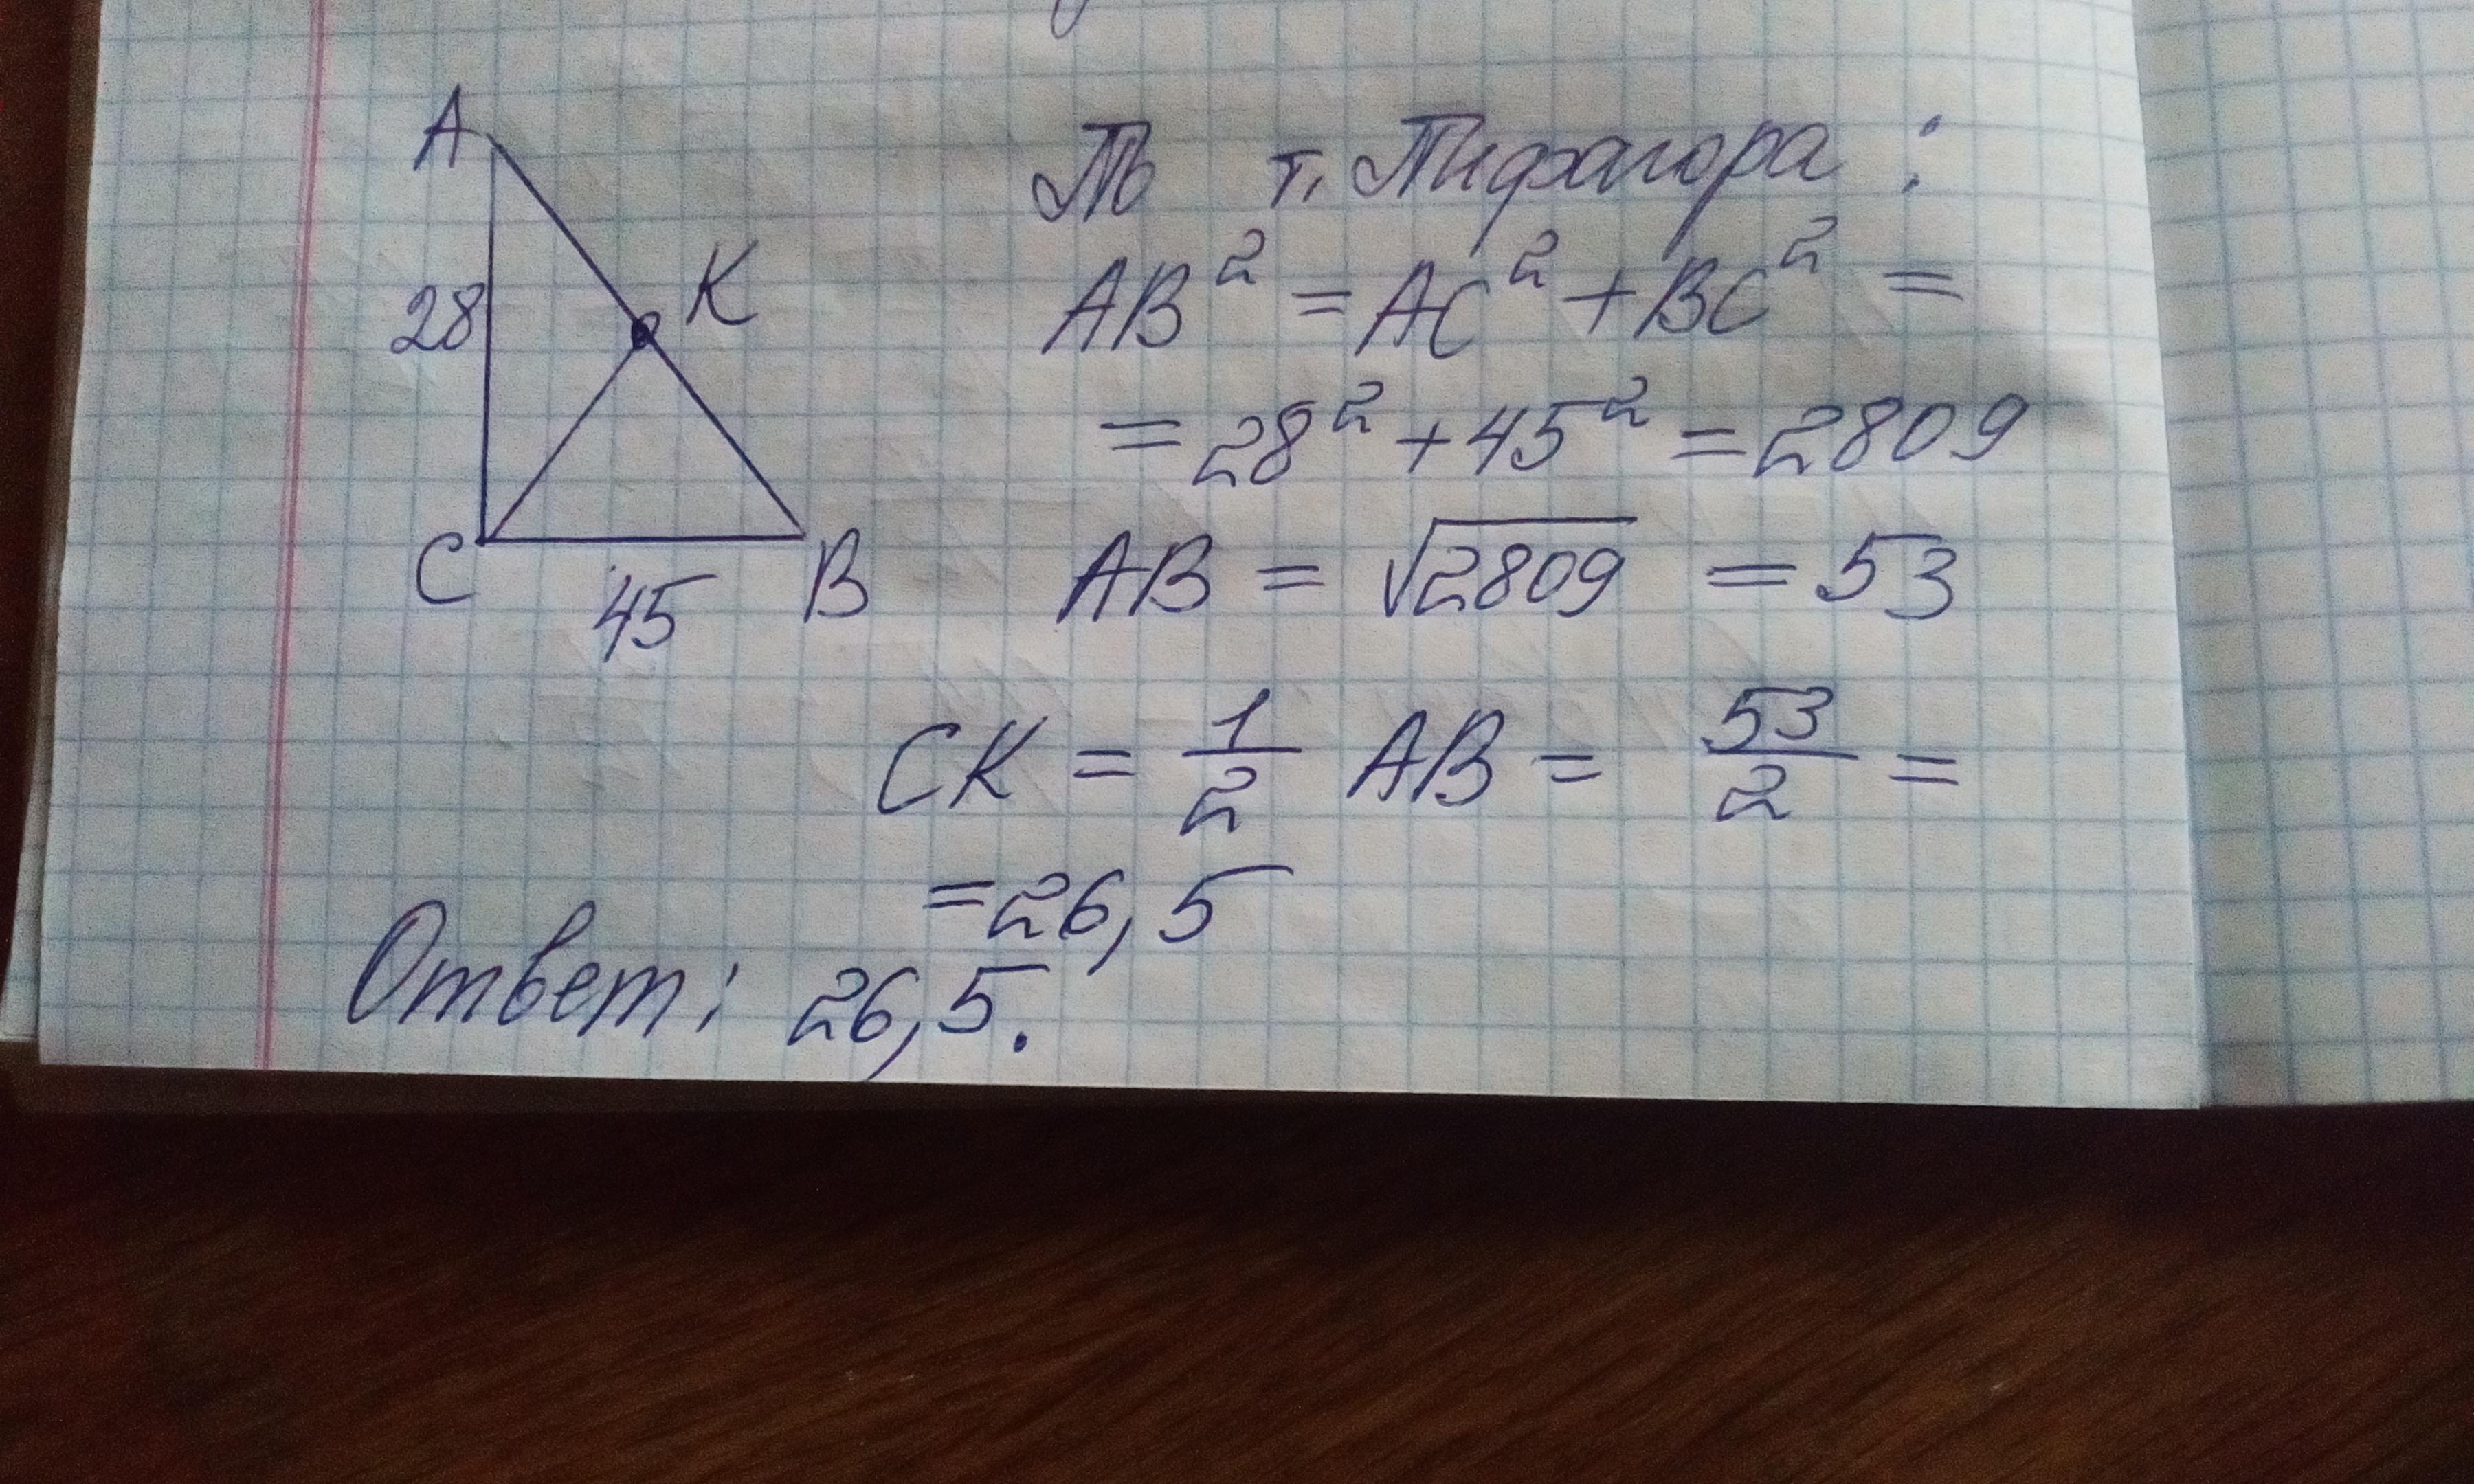 A
K
28
C
B
45
По т. Пифагора:
AB² = AC² + BC² =
= 28² + 45² = 2809
AB = √2809 = 53
CK = 1/2 AB = 53/2 =
= 26,5
Ответ: 26,5.